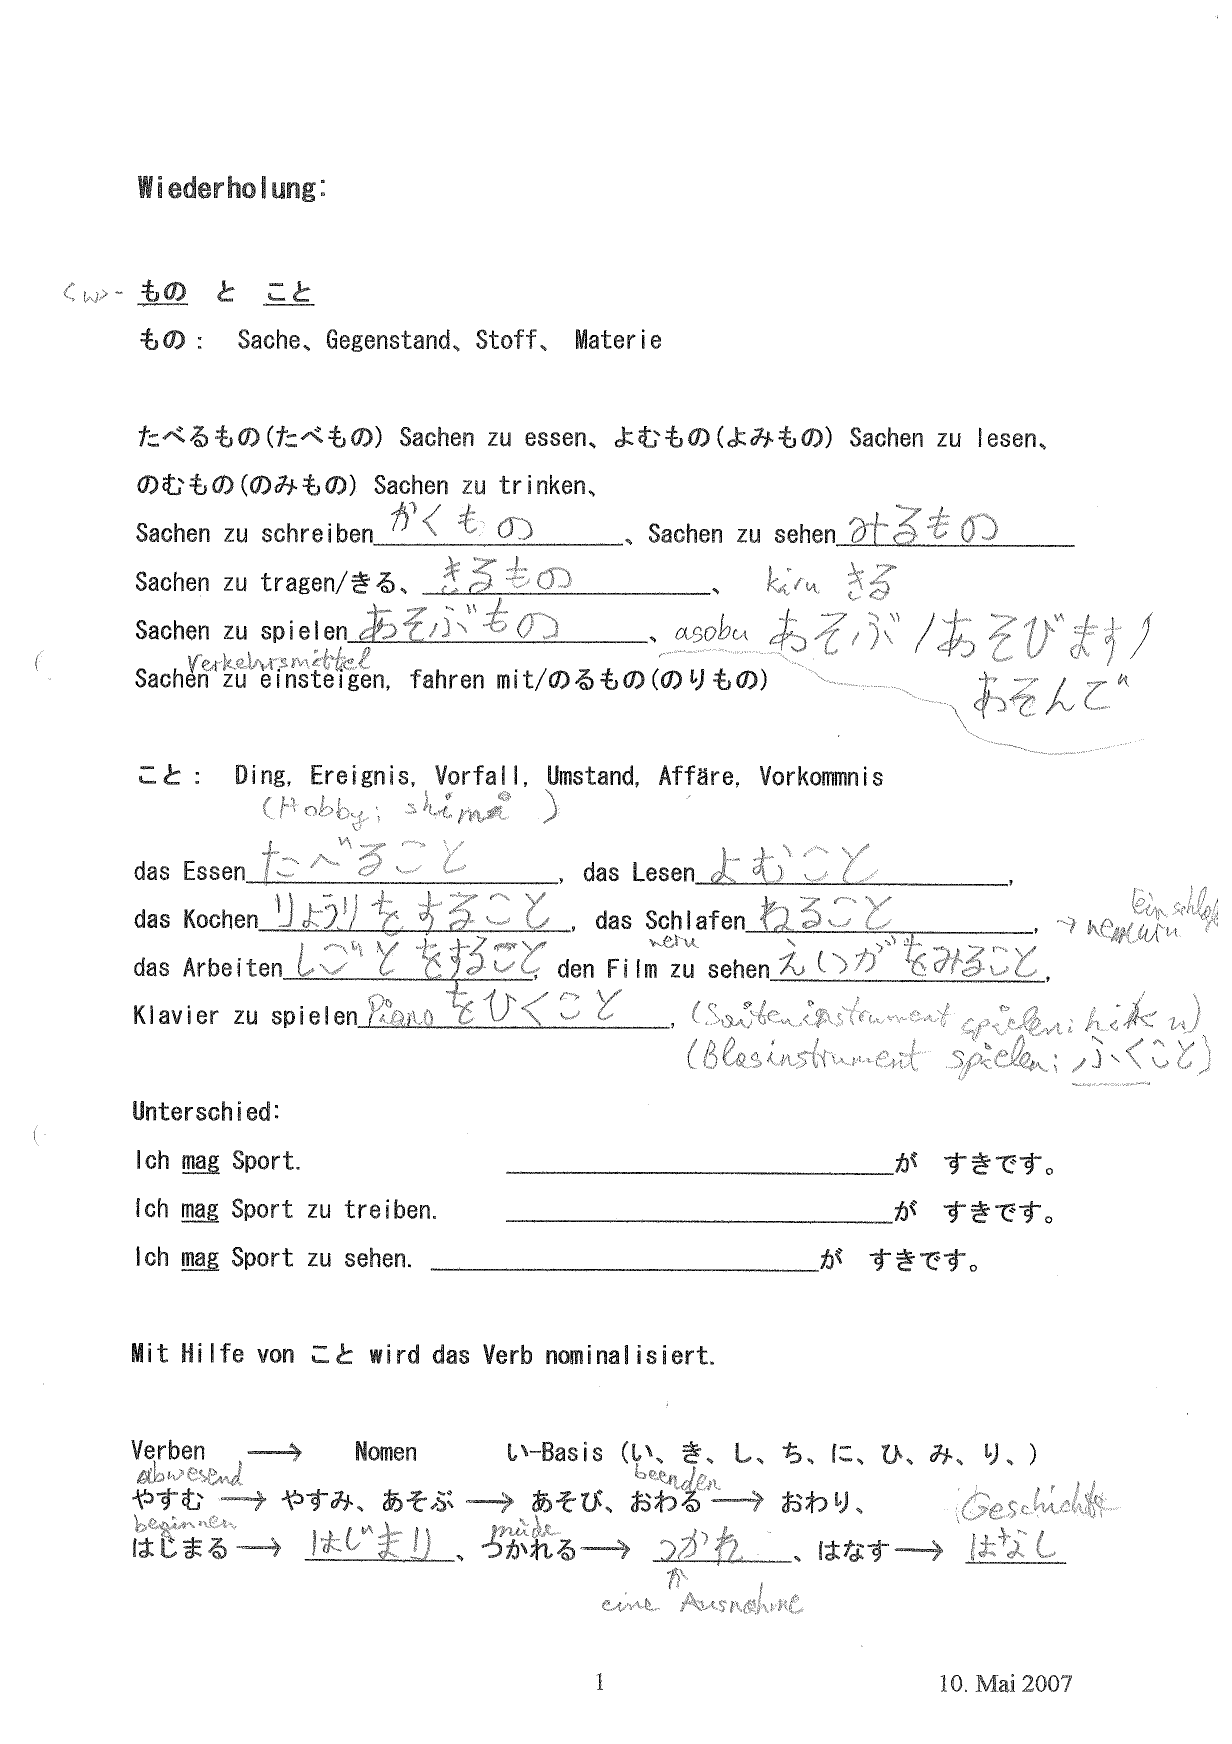 Wiederholung:
<w>- もの と こと
もの： Sache、Gegenstand、Stoff、 Materie
たべるもの(たべもの) Sachen zu essen、よむもの(よみもの) Sachen zu lesen、
のむもの(のみもの) Sachen zu trinken、
Sachen zu schreiben かくもの 、Sachen zu sehen みるもの
Sachen zu tragen/きる、 きるもの 、 kiru きる
Sachen zu spielen あそぶもの 、 asobu あそぶ/あそびます/
Verkehrsmittel
Sachen zu einsteigen, fahren mit/のるもの(のりもの) あそんで
こと： Ding, Ereignis, Vorfall, Umstand, Affäre, Vorkommnis
(Hobby:
das Essen たべること , das Lesen よむこと ,
das Kochen りょうりをすること , das Schlafen ねること ,
neru
das Arbeiten しごとをすること , den Film zu sehen えいがをみること ,
Klavier zu spielen Piano をひくこと , (Saiteninstrument spielen:
(Blasinstrument spielen: ふくこと)
Unterschied:
Ich mag Sport. が すきです。
Ich mag Sport zu treiben. が すきです。
Ich mag Sport zu sehen. が すきです。
Mit Hilfe von こと wird das Verb nominalisiert.
Verben → Nomen い-Basis (い、き、し、ち、に、ひ、み、り、)
abwesend beenden
やすむ → やすみ、あそぶ → あそび、おわる → おわり、 Geschichte
beginnen müde
はじまる → はじまり 、つかれる → つかれ 、はなす → はなし
eine Ausnahme
1 10. Mai 2007